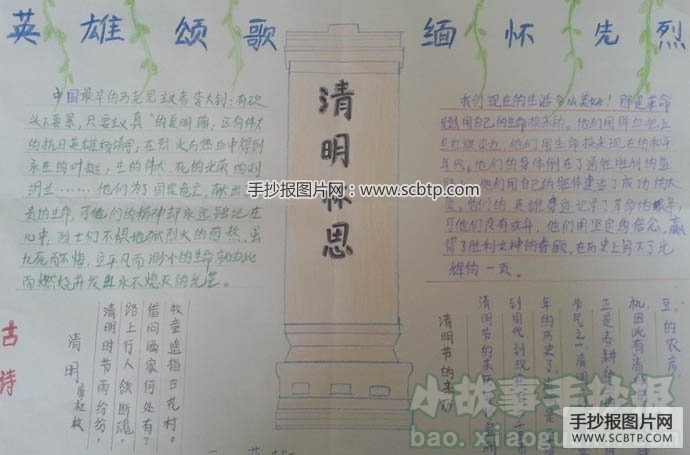 英雄颂歌 缅怀先烈
中国最早的马克思主义者李大钊;有砍
头不要紧,只要主义真"的夏明翰;还有伟大
的抗日英雄杨靖宇;在烈火与热血中得到
永生的叶挺;生的伟大,死的光荣的刘
胡兰……他们为了国家危亡,献出
的生命,可他们的精神却永远铭记在
心中,烈士们不惧地狱烈火的煎熬,虽
九死而不悔,
而燃烧并发出永不熄灭的光芒。
清明怀恩
我们现在的生活多么美好!那是革命
先烈用自己的生命换来的。他们用鲜血把五
星红旗染红,他们用生命换来现在的和平
年代。他们的身体倒在了
路,他们用自己的躯体建造了成功的大
厦,他们的英雄事迹记录了革命的
可他们没有放弃,他们用坚定的信念,赢
得了胜利女神的眷顾,在历史上写下了光
辉的一页。
手抄报图片网:www.scbtp.com
古诗
清明 唐 杜牧
清明时节雨纷纷,
路上行人欲断魂。
借问酒家何处有?
牧童遥指杏花村。
清明节的来历
清明节的来历
到周代到现在
年的历史了。
节气之一,清明
正是春耕
机,因此有"清明
豆"的农谚,
小故事手抄报
bao.xiaogu
手抄报图片网
WWW.SCBTP.COM